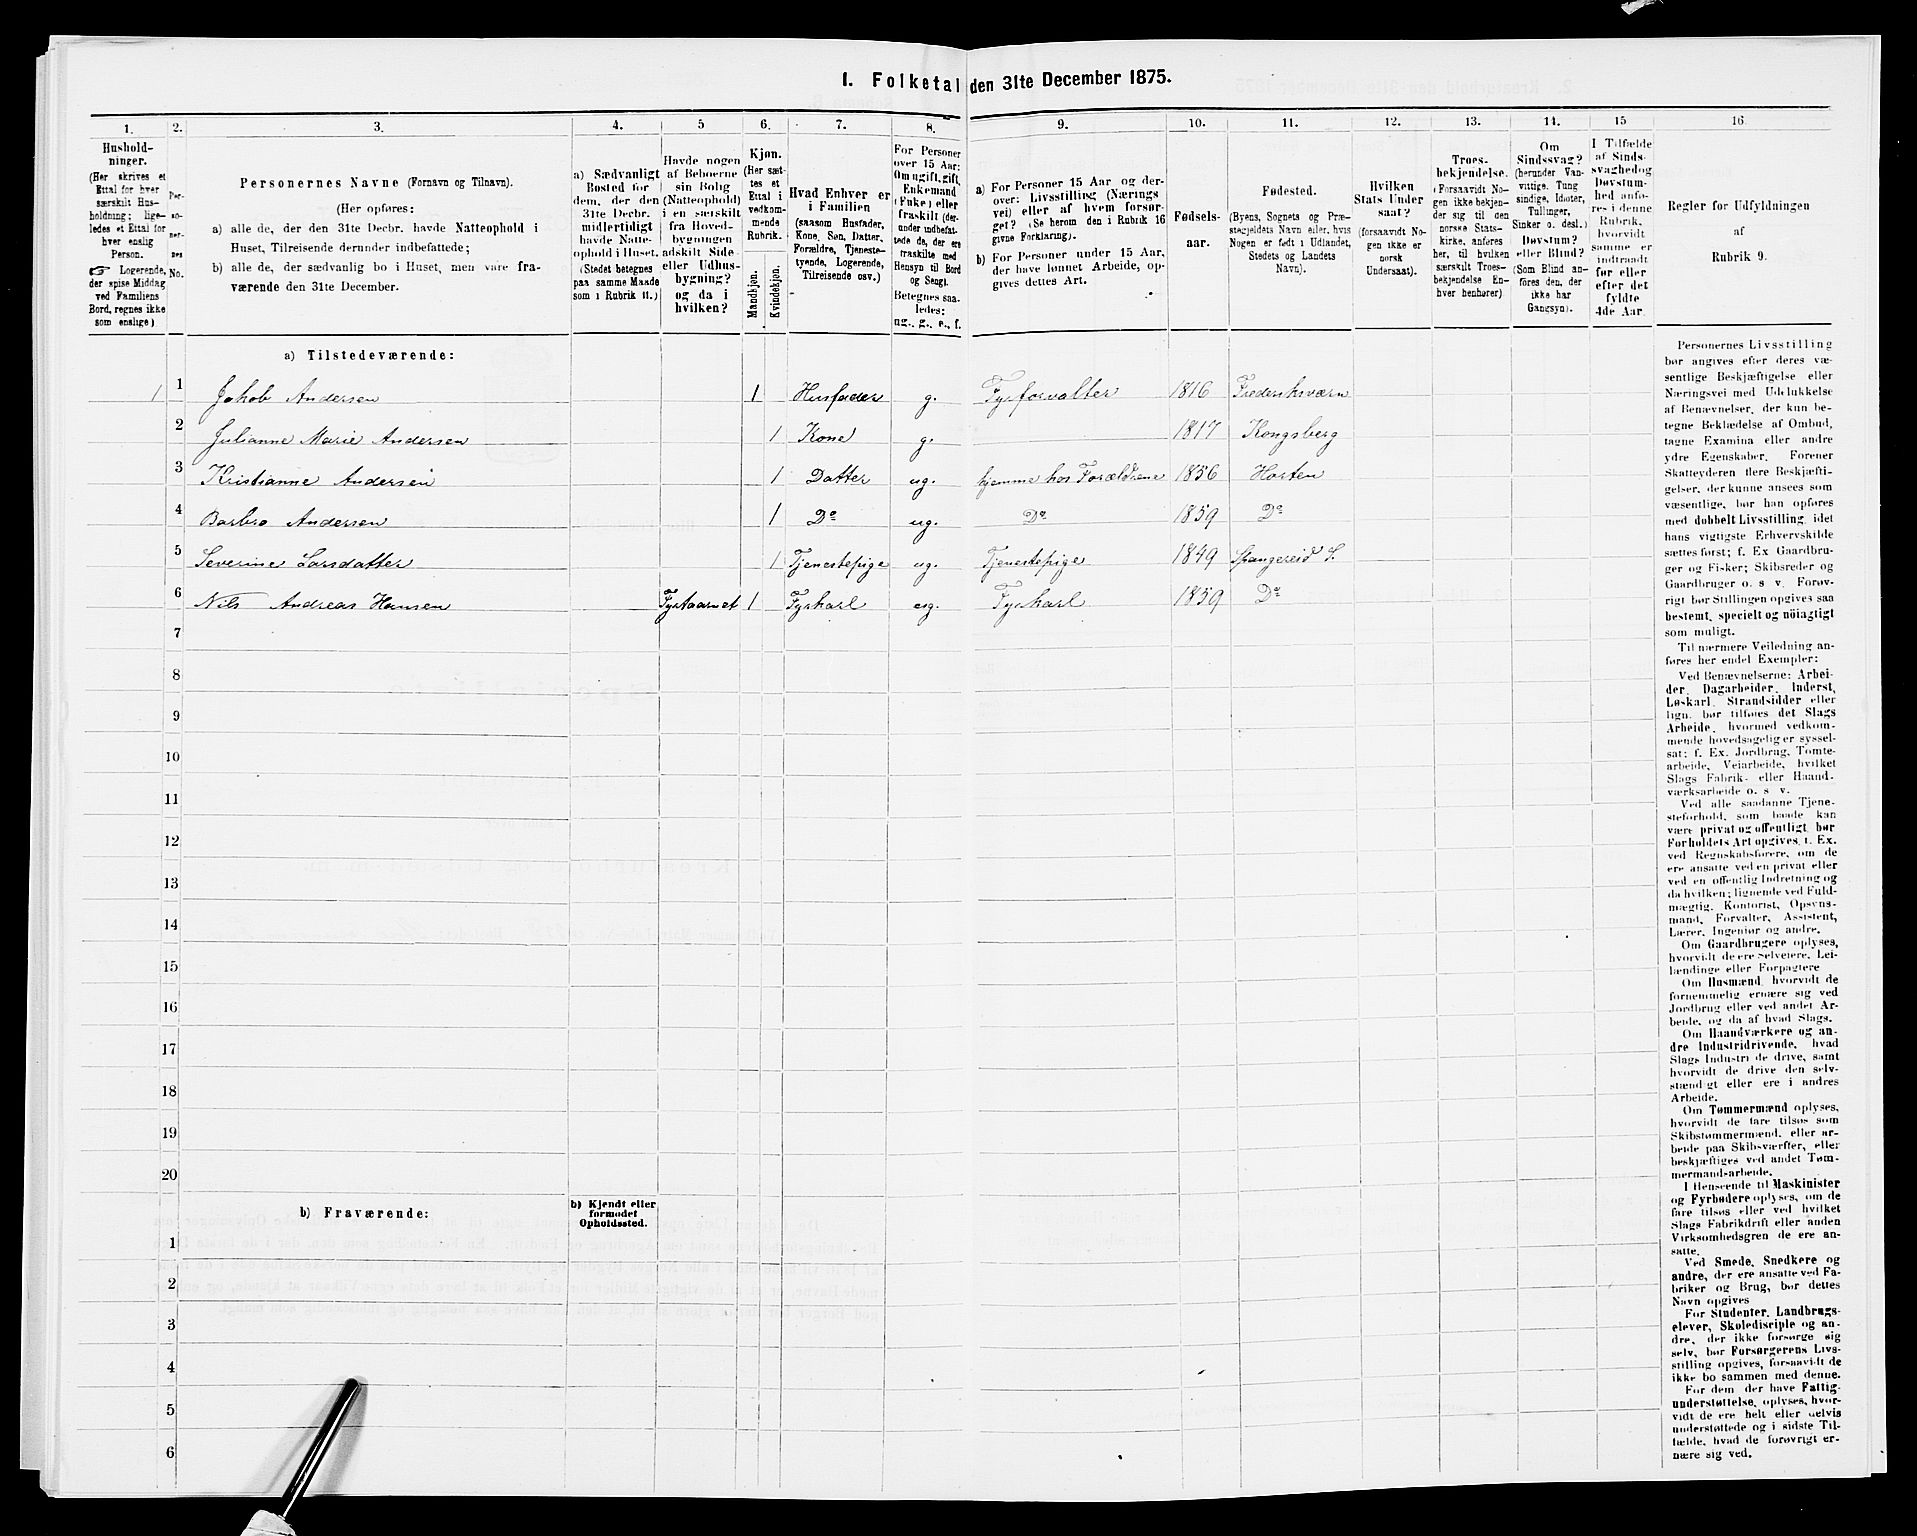 1. Folketal den 31te December 1875.
1. 2. 3. 4. 5 6. 7. 8. 9. 10. 11. 12. 13. 14. 15 16.
Hushold-
ninger.
(Her skrives et
Ettal for hver
særskilt Hus-
holdning; lige-
ledes et Ettal for
hver enslig
Person.
Logerende,
der spise Middag
ved Familiens
Bord, regnes ikke
som enslige)
Per-
so-
ner-
nes
No.
Personernes Navne (Fornavn og Tilnavn).
(Her opføres:
a) alle de, der den 31te Decbr. havde Natteophold i
Huset, Tilreisende derunder indbefattede;
b) alle de, der sædvanlig bo i Huset, men vare fra-
værende den 31te December.
a) Sædvanligt
Bosted for
dem, der den
31te Decbr.
midlertidigt
havde Natte-
ophold i Huset.
(Stedet betegnes
paa samme Maade
som i Rubrik 11.)
Havde nogen
af Beboerne
sin Bolig
(Natteophold)
i en særskilt
fra Hoved-
bygningen
adskilt Side-
eller Udhus-
bygning?
og da i
hvilken?
Kjøn.
(Her sæt-
tes et
Ettal i
vedkom-
mende
Rubrik.
Mandkjøn.
Kvindekjøn.
Hvad Enhver er
i Familien
(saasom Husfader,
Kone, Søn, Datter,
Forældre, Tjeneste-
tyende, Logerende,
Tilreisende osv.)
For Personer
over 15 Aar:
Om ugift, gift,
Enkemand
(Enke) eller
fraskilt (der-
under indbefat-
tede de, der ere
fraskilte med
Hensyn til Bord
og Seng).
Betegnes saa-
ledes:
ug., g., e., f.
a) For Personer 15 Aar og der-
over: Livsstilling (Nærings-
vei) eller af hvem forsør-
get? (Se herom den i Rubrik 16
givne Forklaring).
b) For Personer under 15 Aar,
der have lønnet Arbeide, op-
gives dettes Art.
Fødsels-
aar.
Fødested.
(Byens, Sognets og Præ-
stegjeldets Navn eller, hvis
Nogen er født i Udlandet,
Stedets og Landets
Navn).
Hvilken
Stats Under
saat?
(forsaavidt No-
gen ikke er
norsk
Undersaat).
Troes-
bekjendelse.
(Forsaavidt No-
gen ikke bekjen-
der sig til den
norske Stats-
kirke, anføres
her, til hvilken
særskilt Troes-
bekjendelse En-
hver henhører)
Om
Sindssvag?
(herunder Van-
vittige, Tung
sindige, Idioter,
Tullinger,
Sinker o. desl.)
Døvstum?
eller Blind?
(Som Blind an-
føres den, der
ikke har
Gangsyn).
I Tilfælde
af Sinds-
svaghed og
Døvstum-
hed anfø-
res i denne
Rubrik,
hvorvidt
samme er
indtraadt
før eller
efter det
fyldte
4de Aar.
Regler for Udfyldningen
af
Rubrik 9.
a) Tilstedeværende:
1 1 Jakob Andersen 1 Husfader g. Fyrforvalter 1816 Frederiksværn
2 Julianne Marie Andersen 1 Kone g. 1817 Kongsberg
3 Kristianne Andersen 1 Datter ug. hjemme hos Forældrene 1856 Horten
4 Barbro Andersen 1 Do ug. Do 1859 Do
5 Severine Larsdatter 1 Tjenestepige ug. Tjenestepige 1849 Spangereid S.
6 Nils Andreas Hansen Fyrtaarnet 1 Fyrkarl ug. Fyrkarl 1859 Do
7
8
9
10
11
12
13
14
15
16
17
18
19
20
b) Fraværende:
b) Kjendt eller
formodet
Opholdssted.
1
2
3
4
5
6
Personernes Livsstilling
bør angives efter deres væ-
sentlige Beskjæftigelse eller
Næringsvei med Udelukkelse
af Benævnelser, der kun be-
tegne Beklædelse af Ombud,
tagne Examina eller andre
ydre Egenskaber. Forener
Skatteyderen flere Beskjæfti-
gelser, der kunne ansees som
væsentlige, bør han opføres
med dobbelt Livsstilling, idet
hans vigtigste Erhvervskilde
sættes først; f. Ex Gaardbru-
ger og Fisker; Skibsreder og
Gaardbruger o. s v. Forøv-
rigt bør Stillingen opgives saa
bestemt, specielt og nöiagtigt
som muligt.
Til nærmere Veiledning an-
føres her endel Exempler:
Ved Benævnelserne: Arbei-
der, Dagarbeider, Inderst,
Løskarl, Strandsidder eller
lign. bør tilføres det Slags
Arbeide, hvormed vedkom-
mende hovedsagelig er syssel-
sat; f. Ex. Jordbrug, Tomte-
arbeide, Veiarbeide, hvilket
Slags Fabrik- eller Haand-
værksarbeide o. s v.
Ved alle saadanne Tjene-
steforhold, som baade kan
være privat og offentligt, bør
Forholdets Art opgives, f. Ex.
ved Regnskabsførere, om de
ere ansatte ved en privat eller
ved en offentlig Indretning og
da hvilken; lignende ved Fuld-
mægtig, Kontorist, Opsyns-
mand, Forvalter, Assistent,
Lærer, Ingeniør og andre.
Om Gaardbrugere oplyses,
hvorvidt de ere Selveiere, Lei-
lændinge eller Forpagtere
Om Husmænd, hvorvidt de
fornemmelig ernære sig ved
Jordbrug eller ved andet Ar-
beide, og da af hvad Slags.
Om Haandværkere og an-
dre Industridrivende, hvad
Slags Industri de drive, samt
hvorvidt de drive den selv-
stændigt eller ere i andres
Arbeide.
Om Tømmermænd oplyses,
hvorvidt de fare tilsøs som
Skibstømmermænd, eller ar-
beide paa Skibsværfter, eller
beskjæftiges ved andet Tøm-
mermandsarbeide.
I Henseende til Maskinister
og Fyrbødere oplyses, om de
fare tilsøs eller ved hvilket
Slags Fabrikdrift eller anden
Virksomhedsgren de ere an-
satte.
Ved Smede, Snedkere og
andre, der ere ansatte ved Fa-
briker og Brug, bør dettes
Navn opgives
For Studenter, Landbrugs-
elever, Skoledisciple og an-
dre, der ikke forsørge sig
selv, bør Forsørgerens Livs-
stilling opgives, forsaavidt de
ikke bo sammen med denne.
For dem, der have Fattig-
understøttelse, oplyses, hvor-
vidt de ere helt eller delvis
understøttede og i sidste Til-
fælde, hvad de forøvrigt er-
nære sig ved.